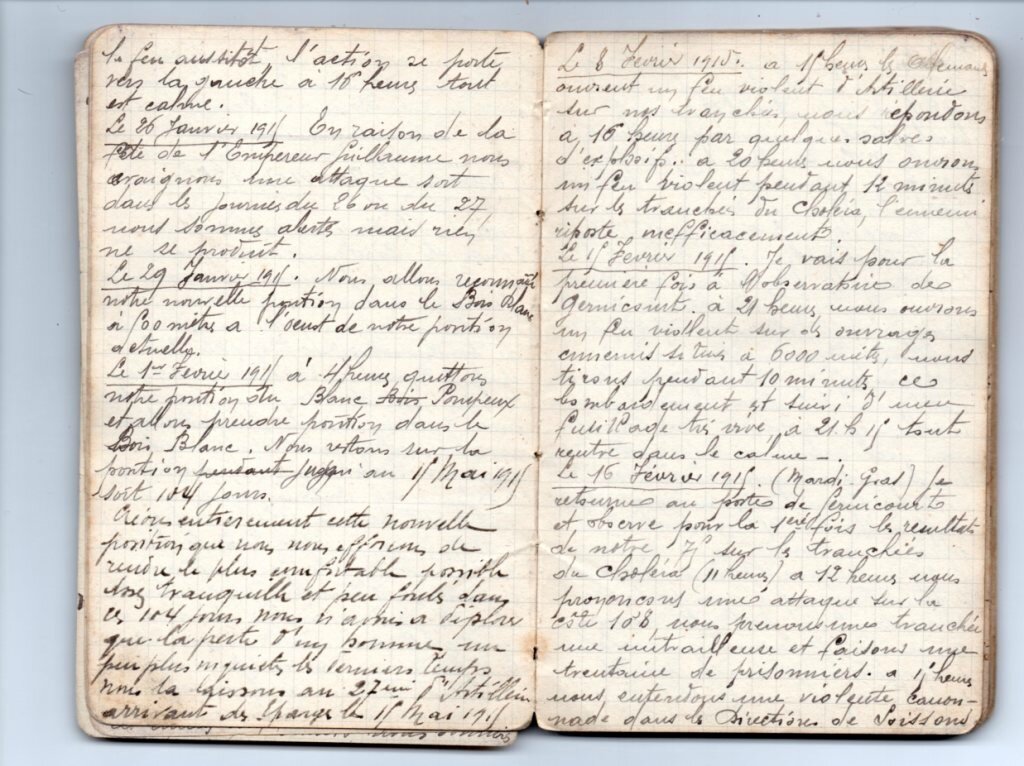 le feu aussitôt, l'action se porte
vers la gauche à 16 heures tout
est calme.
Le 26 Janvier 1915. En raison de la
fête de l'Empereur Guillaume nous
craignons une attaque soit
dans les journées du 26 ou du 27
nous sommes alertés mais rien
ne se produit.
Le 29 Janvier 1915. Nous allons reconnaître
notre nouvelle position dans le Bois Blanc
à 600 mètres a l'ouest de notre position
actuelle.
Le 1er Février 1915 à 4 heures quittons
notre position du Blanc Bois Pompeux
et allons prendre position dans le
Bois Blanc. Nous restons sur la
position pensant jusqu'au 15 Mai 1915
soit 104 jours.
Créons entièrement cette nouvelle
position que nous nous efforçons de
rendre le plus confortable possible
Assez tranquille et peu dans
ces 104 jours nous n'avons à déplorer
que la perte d'un homme un
peu plus inquiétés les derniers temps
nous la laissons au 27ème d'Artillerie
arrivant des Eparges le 15 Mai 1915.
Le 8 Février 1915. a 15 heures les Allemands
ouvrent un feu violent d'Artillerie
sur nos tranchées, nous répondons
a 16 heures par quelques salves
d'explosifs. a 20 heures nous ouvrons
un feu violent pendant 12 minutes
sur les tranchées du Choléra, l'ennemi
riposte inefficacement.
Le 15 Février 1915. Je vais pour la
première fois à l'observatoire de
Gernicourt. à 21 heures nous ouvrons
un feu violent sur des ouvrages
ennemis situés à 6000 mètres, nous
tirons pendant 10 minutes, ce
bombardement est suivi d'une
fusillade très vive, à 21 h 15 tout
rentre dans le calme -.
Le 16 Février 1915. (Mardi Gras) Je
retourne au poste de Gernicourt
et observe pour la 1ère fois les résultats
de notre 75 sur les tranchées
du choléra (11 heures) a 12 heures nous
prononçons une attaque sur la
côte 108, nous prenons une tranchée
une mitrailleuse et faisons une
trentaine de prisonniers. a 15 heures
nous entendons une violente canon-
nade dans les Directions de Soissons